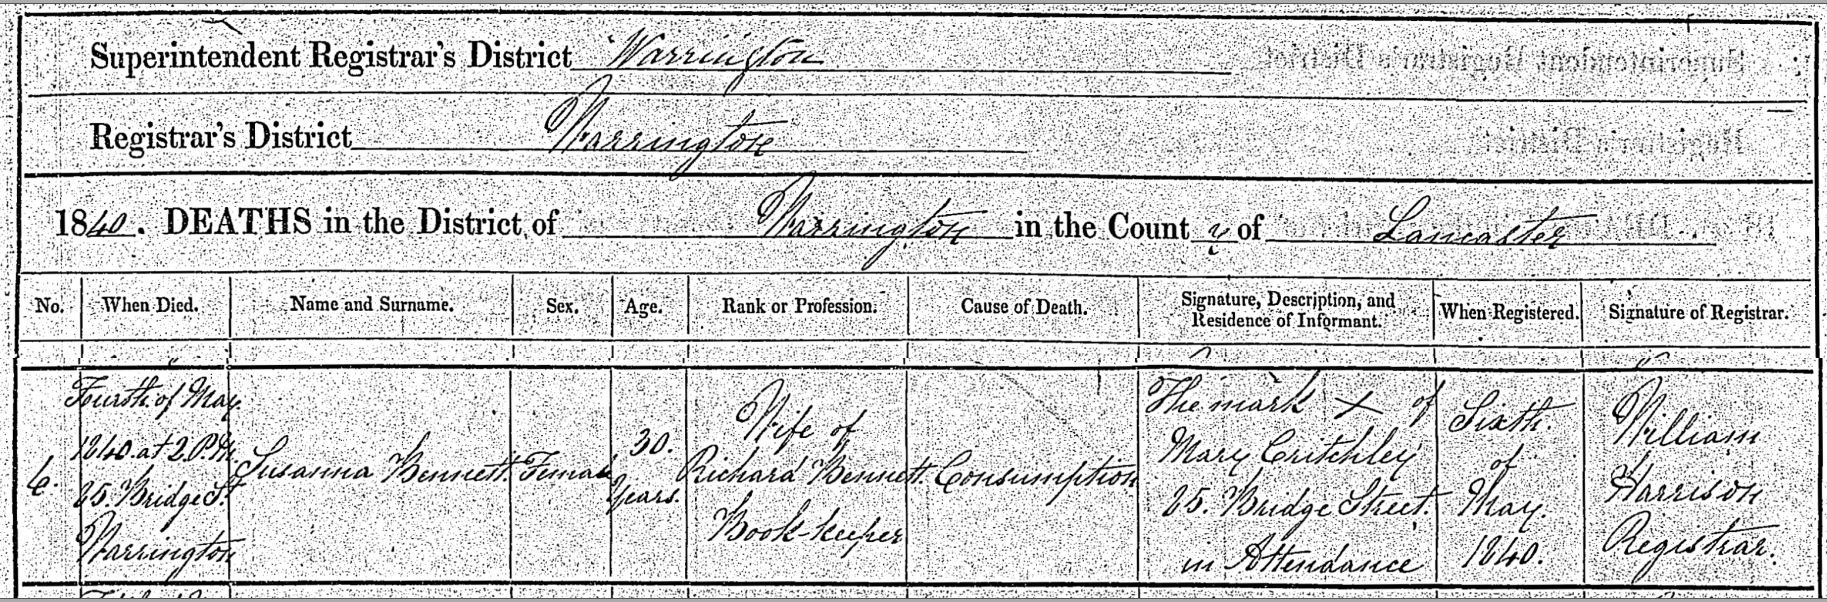 Superintendent Registrar's District Warrington
Registrar's District Warrington
1840. DEATHS in the District of Warrington in the County of Lancaster
No. When Died. Name and Surname. Sex. Age. Rank or Profession. Cause of Death. Signature, Description, and Residence of Informant. When Registered. Signature of Registrar.
6.
Fourth of May
1840. at 2. P.M.
25. Bridge St
Warrington
Susanna Bennett
Female
30.
Years.
Wife of
Richard Bennett
Book-keeper
Consumption
The mark X of
Mary Critchley
25. Bridge Street.
in Attendance
Sixth.
of
May.
1840.
William
Harrison
Registrar.